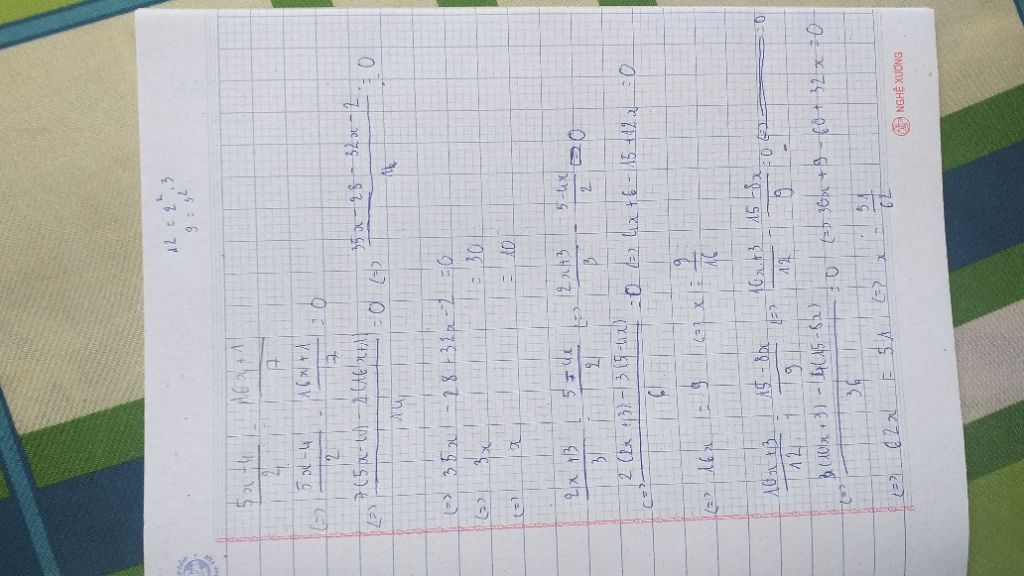 12 = 2².3
9 = 3²
5x-4/2 = 16x+1/7
(=) 5x-4/2 - 16x+1/7 = 0
(=) 7(5x-4) - 2(16x+1)/14 = 0 (=) 35x - 28 - 32x - 2/14 = 0
(=) 35x - 28 + 32x - 2 = 0
(=) 3x = 30
(=) x = 10
2x+3/3 = 5-4x/2 (=) 2x+3/3 - 5-4x/2 = 0
(=) 2(2x+3) - 3(5-4x)/6 = 0 (=) 4x+6 - 15+12x = 0
(=) 16x = 9 (=) x = 9/16
10x+3/12 = 15-8x/9 (=) 10x+3/12 - 15-8x/9 = 0 (=) = 0
(=) 3(10x+3) - 4(15-8x)/36 = 0 (=) 30x+9 - 60+32x = 0
(=) 62x = 51 (=) x = 51/62
NGHỆ XƯƠNG